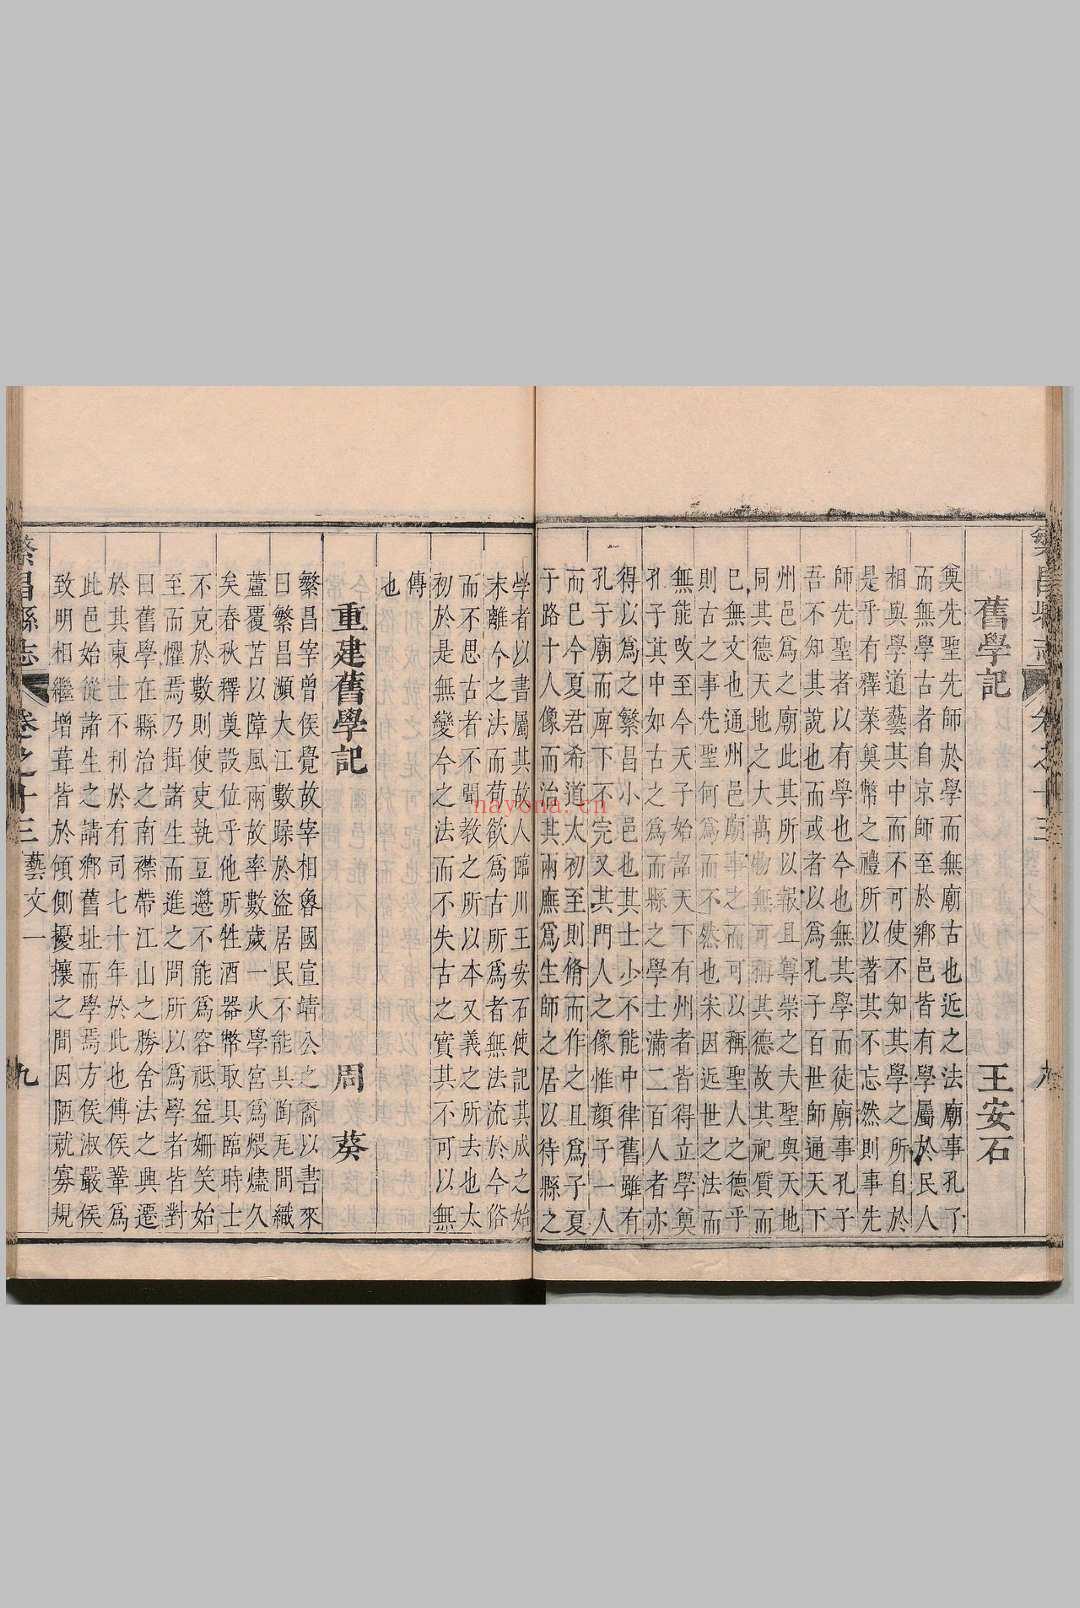 舊學記
王安石
奠先聖先師於學而無廟古也近之法廟事孔子
而無學古者自京師至於鄉邑皆有學屬於民人
相與學道藝其中而不可使不知其學之所自於
是乎有釋菜奠幣之禮所以著其不忘然則事先
師先聖者以有學也今也無其學而徒廟事孔子
吾不知其說也而或者以為孔子百世師通天下
州邑為之廟此其所以報且尊崇之夫聖與天地
同其德天地之大萬物無可稱其德故其祀質而
已無文也通州邑廟事之而可以稱聖人之德乎
則古之事先聖何為而不然也宋因近世之法而
無能改至今天子始詔天下有州者皆得立學奠
孔子其中如古之為而縣之學士滿二百人者亦
得以為之繁昌小邑也其士少不能中律舊雖有
孔子廟而庳下不完又其門人之像惟顏子一人
而已今夏君希道太初至則脩而作之且為子夏
子路十人像而治其兩廡為生師之居以待縣之
學者以書屬其故人臨川王安石使記其成之始
夫離今之法而苟欲為古所為者無法流於今俗
而不思古者不聞教之所以本又義之所去也太
初於是無變今之法而不失古之實其不可以無
傳
也
重建舊學記
周葵
繁昌宰曾侯覺故宰相魯國宣靖公之裔以書來
曰繁昌瀕大江數躁於盜居民不能具陶瓦間織
蘆覆苫以障風雨故率數歲一火學宮為煨燼久
矣春秋釋奠設位乎他所牲酒器幣取具臨時士
不克於數則使吏執豆籩不能為容祗益姍笑始
至而懼焉乃揖諸生而進之問所以為學者皆對
曰舊學在縣治之南襟帶江山之勝舍法之興遷
於其東士不利於有司七十年於此也傅侯鞏為
此邑始從諸生之請鄉舊址而學焉方侯淑嚴侯
致明相繼增葺皆於傾側擾攘之間因陋就寡規
繁昌縣志
卷之十三
藝文一
九